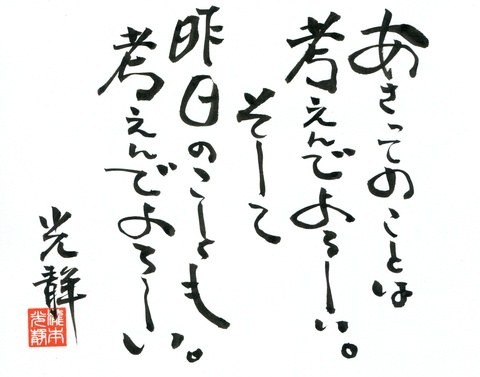 あさってのことは
考えんでよろしい。
そして
昨日のことも
考えんでよろしい。
光靜
瀧本
光靜